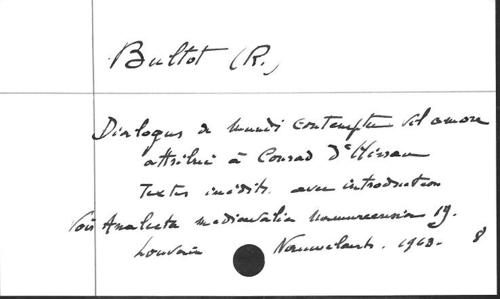 Bultot (R.)
Dialogus de Mundi Contemptu vel amore
attribué à Conrad D'Hirsau
Textes inédits avec introduction
Voir Analecta mediaevalia namurcensia 19.
Louvain Nauwelaerts. 1963. 8